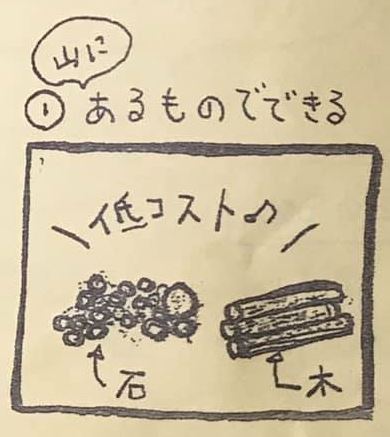 山に
① あるものでできる
低コスト♪
石
木